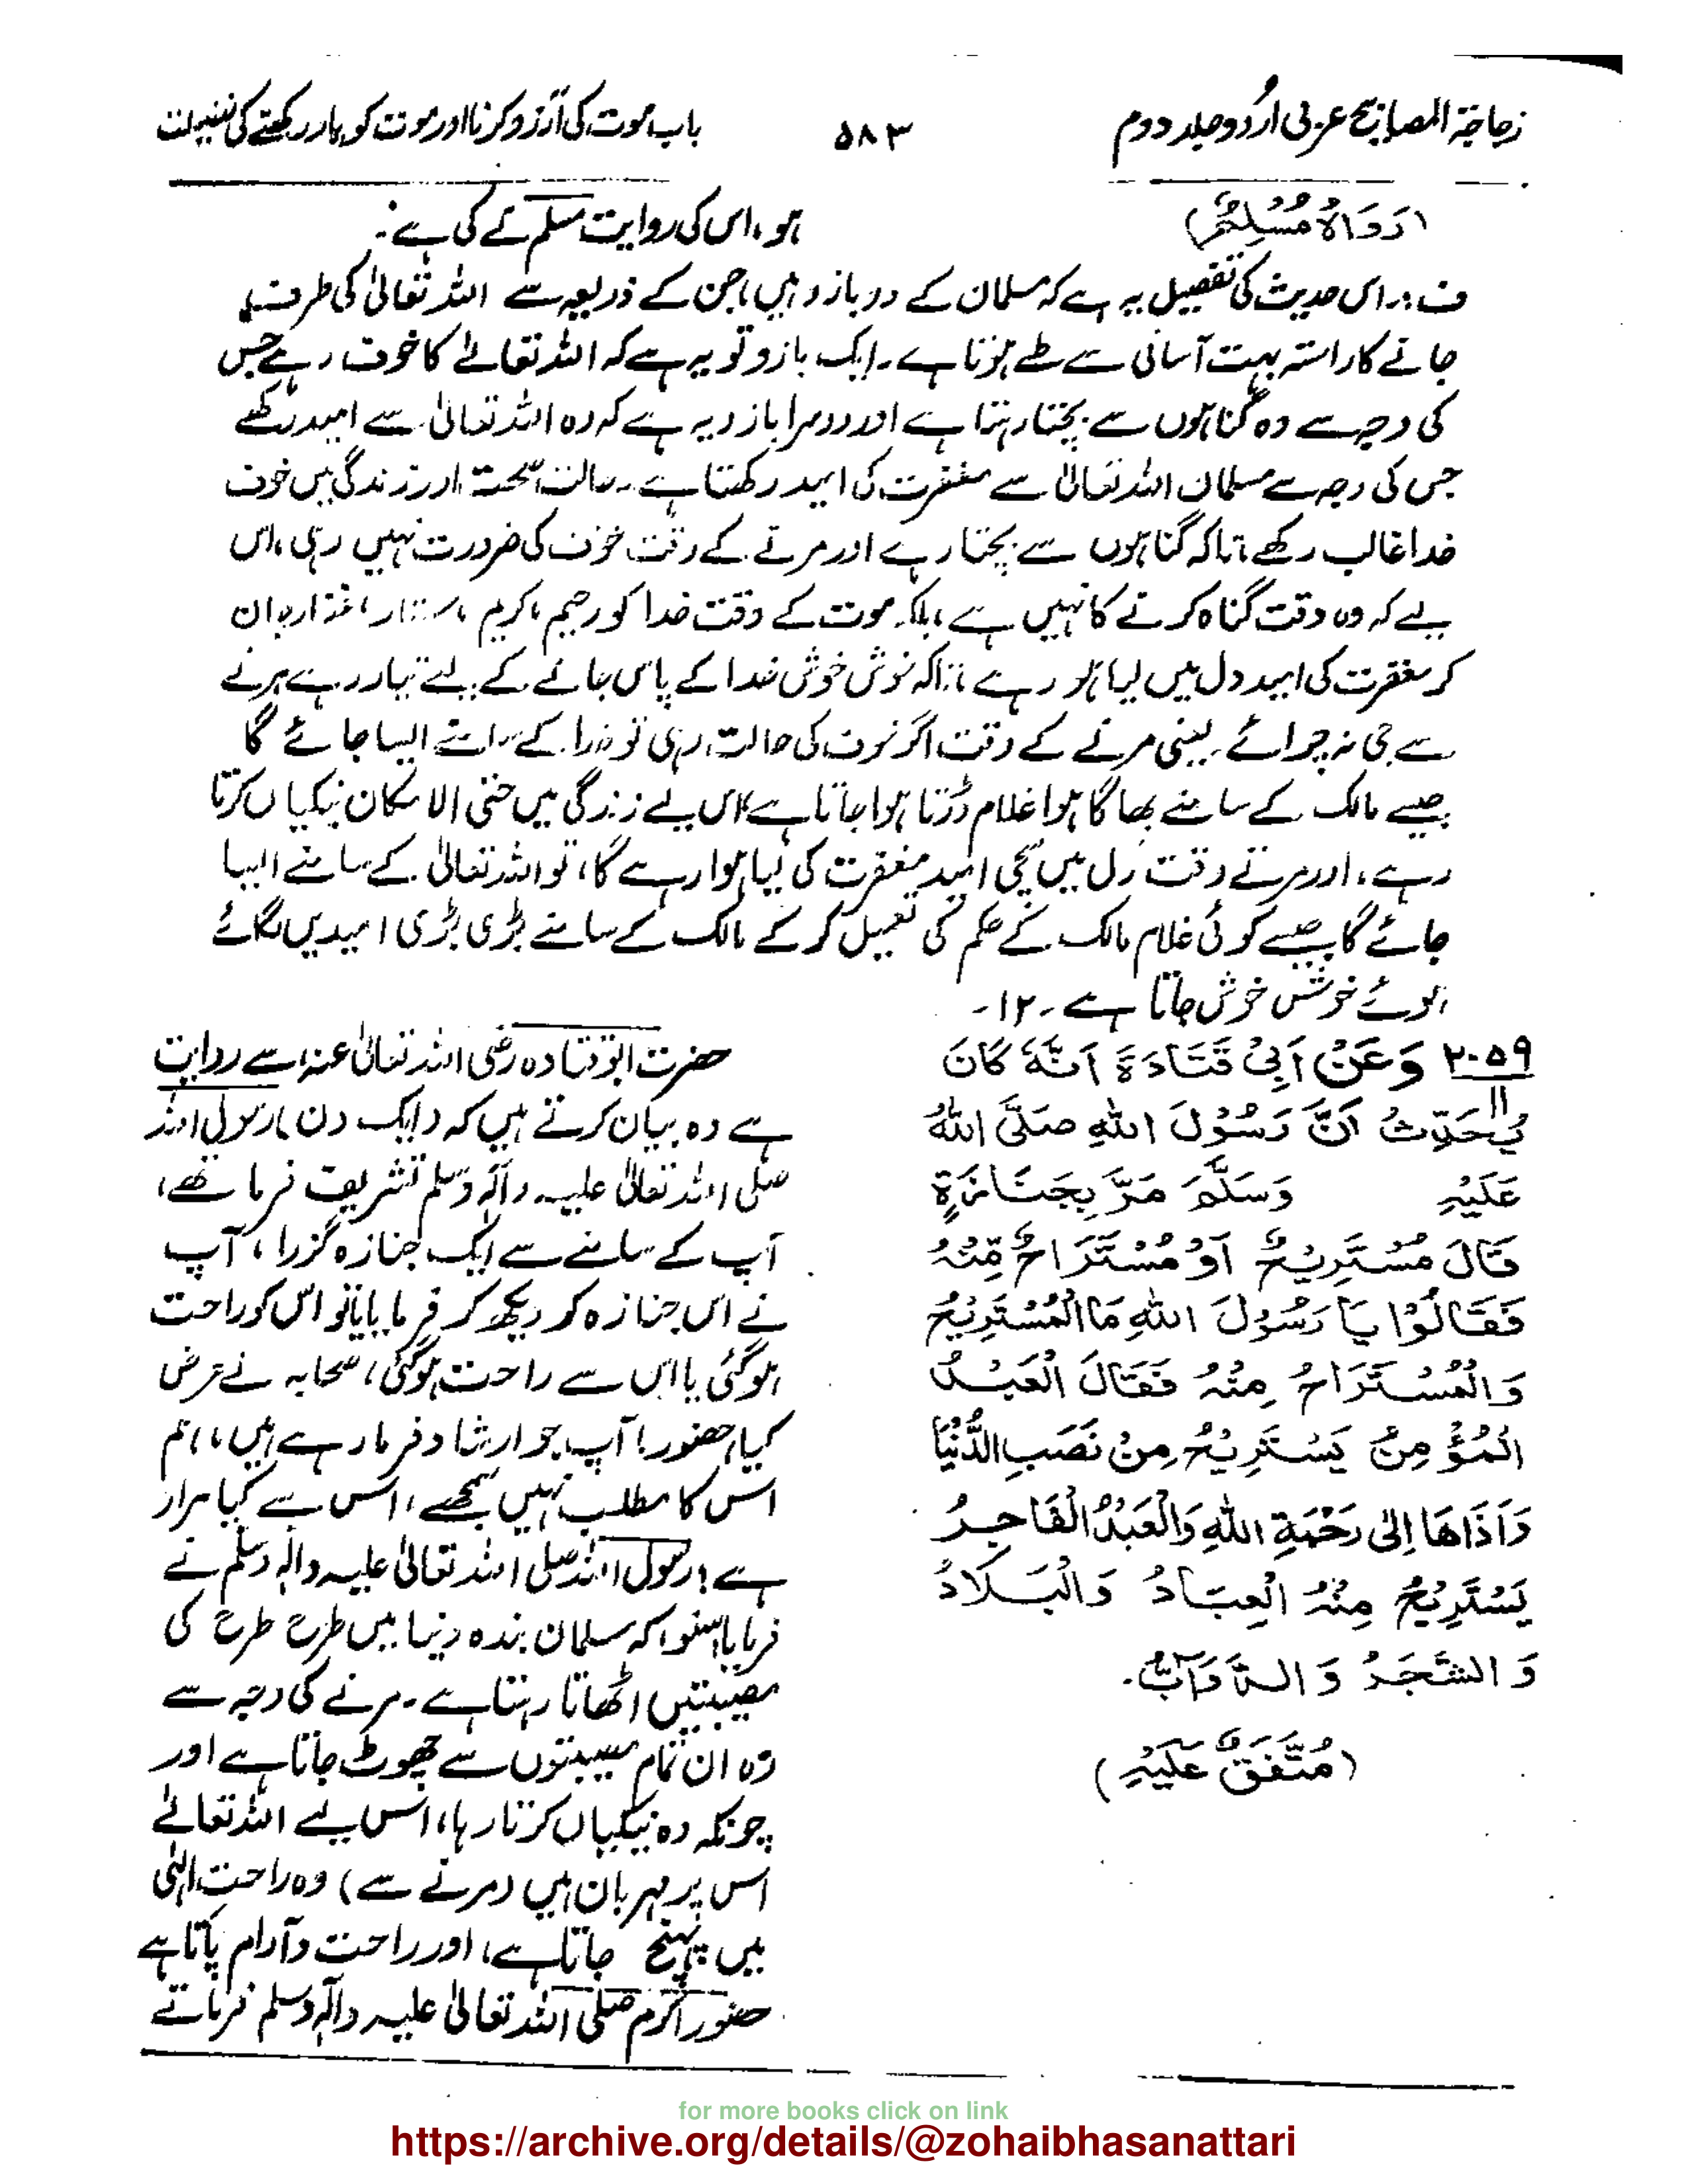 زجاجۃ المصابیح عربی اُردو جلد دوم
۵۸۳
باب موت کی آرزو کرنا اور موت کو یاد رکھنے کی فضیلت
(رَوَاہُ مُسْلِمٌ)
ہو، اس کی روایت مسلم نے کی ہے۔
ف:۔ اس حدیث کی تفصیل یہ ہے کہ مسلمان کے دو بازو ہیں، جن کے ذریعہ سے اللہ تعالیٰ کی طرف
جانے کا راستہ بہت آسانی سے طے ہوتا ہے۔ ایک بازو تو یہ ہے کہ اللہ تعالےٰ کا خوف رہے جس
کی وجہ سے وہ گناہوں سے بچتا رہتا ہے اور دوسرا بازو یہ ہے کہ وہ اللہ تعالیٰ سے امید رکھے
جس کی وجہ سے مسلمان اللہ تعالیٰ سے مغفرت کی امید رکھتا ہے۔ حالت صحت اور زندگی میں خوف
خدا غالب رکھے، تاکہ گناہوں سے بچتا رہے اور مرتے کے وقت خوف کی ضرورت نہیں رہی، اس
لیے کہ وہ وقت گناہ کرنے کا نہیں ہے، بلکہ موت کے وقت خدا کو رحیم، کریم، ستار، غفار، جان
کر مغفرت کی امید دل میں لیا ہو رہے، تاکہ خوش خوش خدا کے پاس جانے کے لئے تیار رہے مرنے
سے جی نہ چرائے۔ یعنی مرنے کے وقت اگر خوف کی حالت رہی تو خدا کے سامنے ایسا جائے گا
جیسے مالک کے سامنے بھاگا ہوا غلام ڈرتا ہوا جاتا ہے، اس لیے زندگی میں حتی الامکان نیکیاں کرتا
رہے، اور مرتے وقت دل میں سچی امید مغفرت کی لیا ہوا رہے گا، تو اللہ تعالیٰ کے سامنے ایسا
جائے گا جیسے کوئی غلام مالک کے حکم کی تعمیل کر کے مالک کے سامنے بڑی بڑی امیدیں لگائے
ہوئے خوش خوش جاتا ہے ۔۱۲۔
۲۰۵۹ وَعَنْ اَبِیْ قَتَادَۃَ اَنَّہٗ کَانَ
یُحَدِّثُ اَنَّ رَسُوْلَ اللہِ صَلَّی اللہُ
عَلَیْہِ وَسَلَّمَ مَرَّ بِجَنَازَۃٍ
قَالَ مُسْتَرِیْحٌ اَوْ مُسْتَرَاحٌ مِّنْہُ
فَقَالُوْا یَا رَسُوْلَ اللہِ مَا الْمُسْتَرِیْحُ
وَالْمُسْتَرَاحُ مِنْہُ فَقَالَ الْعَبْدُ
الْمُؤْمِنُ یَسْتَرِیْحُ مِنْ نَصَبِ الدُّنْیَا
وَاَذَاھَا اِلٰی رَحْمَۃِ اللہِ وَالْعَبْدُ الْفَاجِرُ
یَسْتَرِیْحُ مِنْہُ الْعِبَادُ وَالْبَلَادُ
وَالشَّجَرُ وَالدَّوَآبُّ۔
(مُتَّفَقٌ عَلَیْہِ)
حضرت ابو قتادہ رضی اللہ تعالیٰ عنہ، سے روایت
ہے وہ بیان کرتے ہیں کہ (ایک دن) رسول اللہ
صلی اللہ تعالیٰ علیہ وآلہ وسلم تشریف فرما تھے،
آپ کے سامنے سے ایک جنازہ گزرا، آپ
نے اس جنازہ کو دیکھ کر فرمایا یا تو اس کو راحت
ہو گئی یا اس سے راحت ہو گئی، صحابہ نے عرض
کیا، حضور! آپ جو ارشاد فرما رہے ہیں، ہم
اس کا مطلب نہیں سمجھے، اس سے کیا مراد
ہے؟ رسول اللہ صلی اللہ تعالیٰ علیہ والہٖ وسلم نے
فرمایا، سنو! کہ مسلمان بندہ دنیا میں طرح طرح کی
مصیبتیں اٹھاتا رہتا ہے۔ مرنے کی وجہ سے
وہ ان تمام مصیبتوں سے چھوٹ جاتا ہے اور
چونکہ وہ نیکیاں کرتا رہا، اس لیے اللہ تعالےٰ
اس پر مہربان ہیں (مرنے سے) وہ راحت الٰہی
میں پہنچ جاتا ہے، اور راحت و آرام پاتا ہے
حضور اکرم صلی اللہ تعالیٰ علیہ وآلہٖ وسلم فرماتے
for more books click on link
https://archive.org/details/@zohaibhasanattari